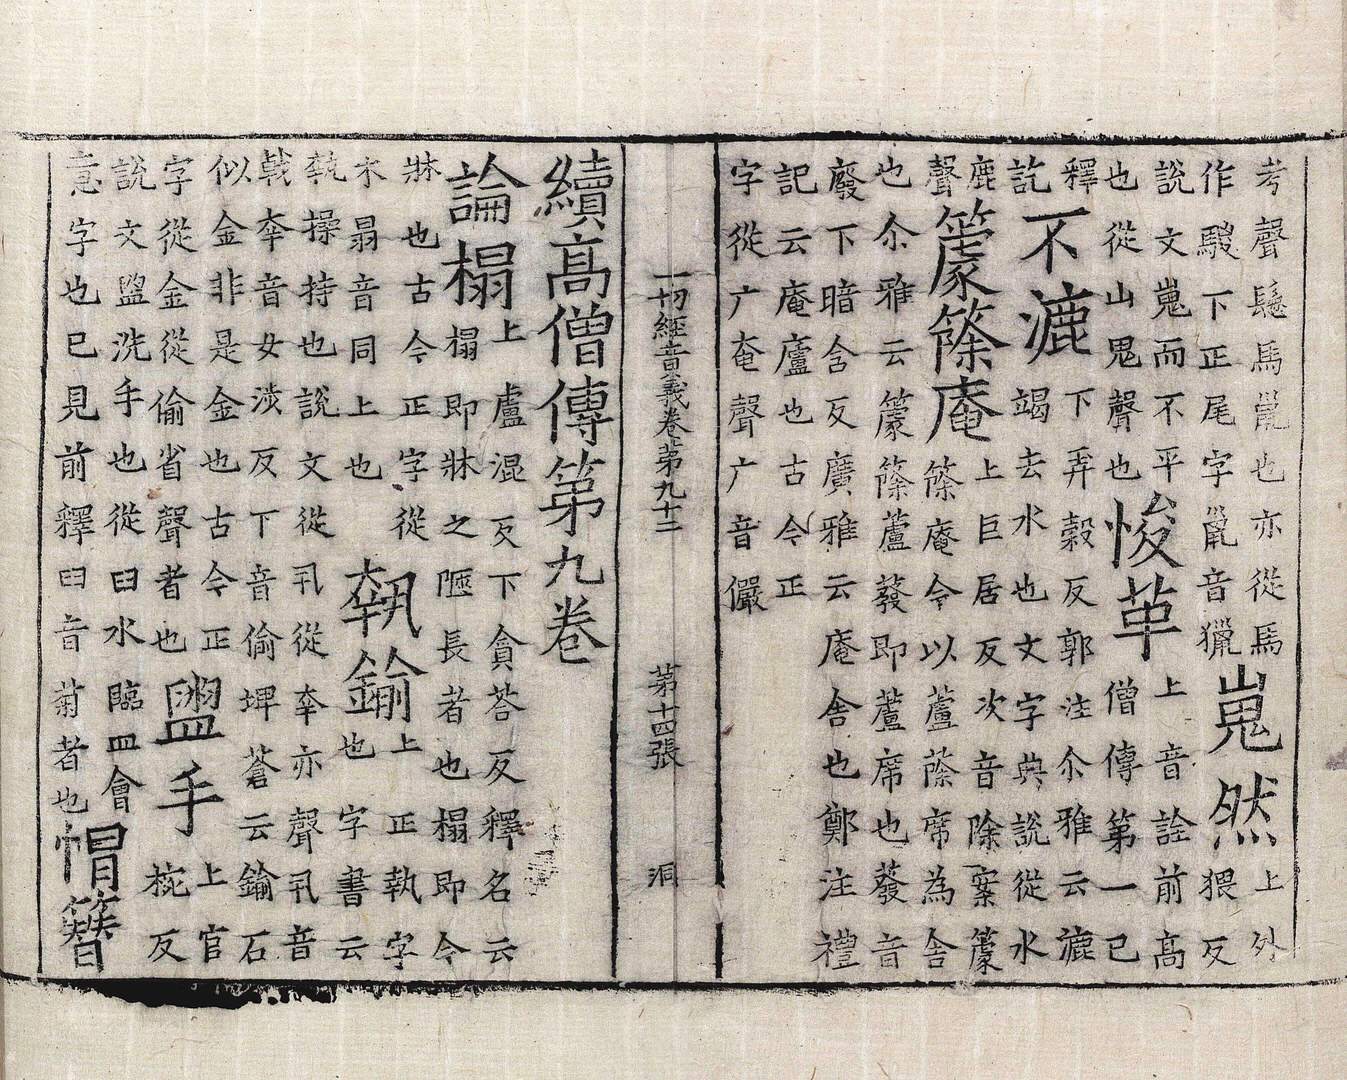 考聲騣馬鬣也亦從馬
作騣下正尾字鬣音獵
嵬然
上外
猥反
說文嵬而不平
也從山鬼聲也
悛革
上音詮前高
僧傳第一已
釋
訖
不漉
下弄穀反郭注尒雅云漉
竭去水也文字典說從水
鹿
聲
籧篨庵
上巨居反次音除案籧
篨庵今以蘆蒢席為舍
也尒雅云籧篨蘆蕟即蘆席也蕟音
廢下暗含反廣雅云庵舍也鄭注禮
記云庵廬也古今正
字從广奄聲广音儼
一切經音義卷第九十二 第十四張 洞
續高僧傳第九卷
論榻
上盧混反下貪荅反釋名云
榻即牀之陿長者也榻即今
牀也古今正字從
木𦐇音同上也
執鍮
上正執字
也字書云
執操持也說文從丮從㚔亦聲丮音
戟㚔音女涉反下音偷埤蒼云鍮石
似金非是金也古今正
字從金從偷省聲者也
盥手
上官
椀反
說文盥洗手也從臼水臨皿會
意字也已見前釋臼音菊者也
帽簪